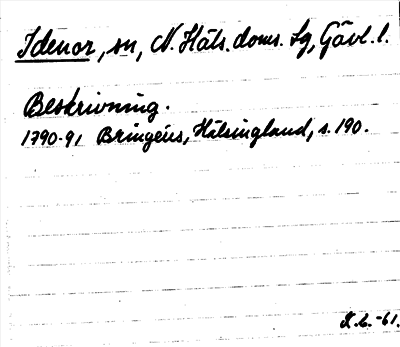 Idenor, sn, N. Häls. doms. sg, Gävl. l.
Beskrivning.
1790-91 Bringéus, Hälsingland, s. 190.
-61.